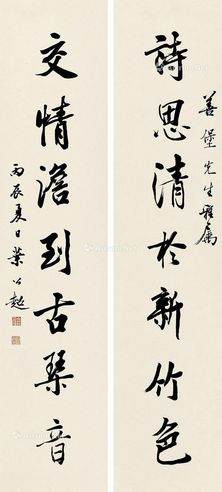 善堡先生雅屬
詩思清於新竹色
交情澹到古琴音
丙辰夏日葉公超